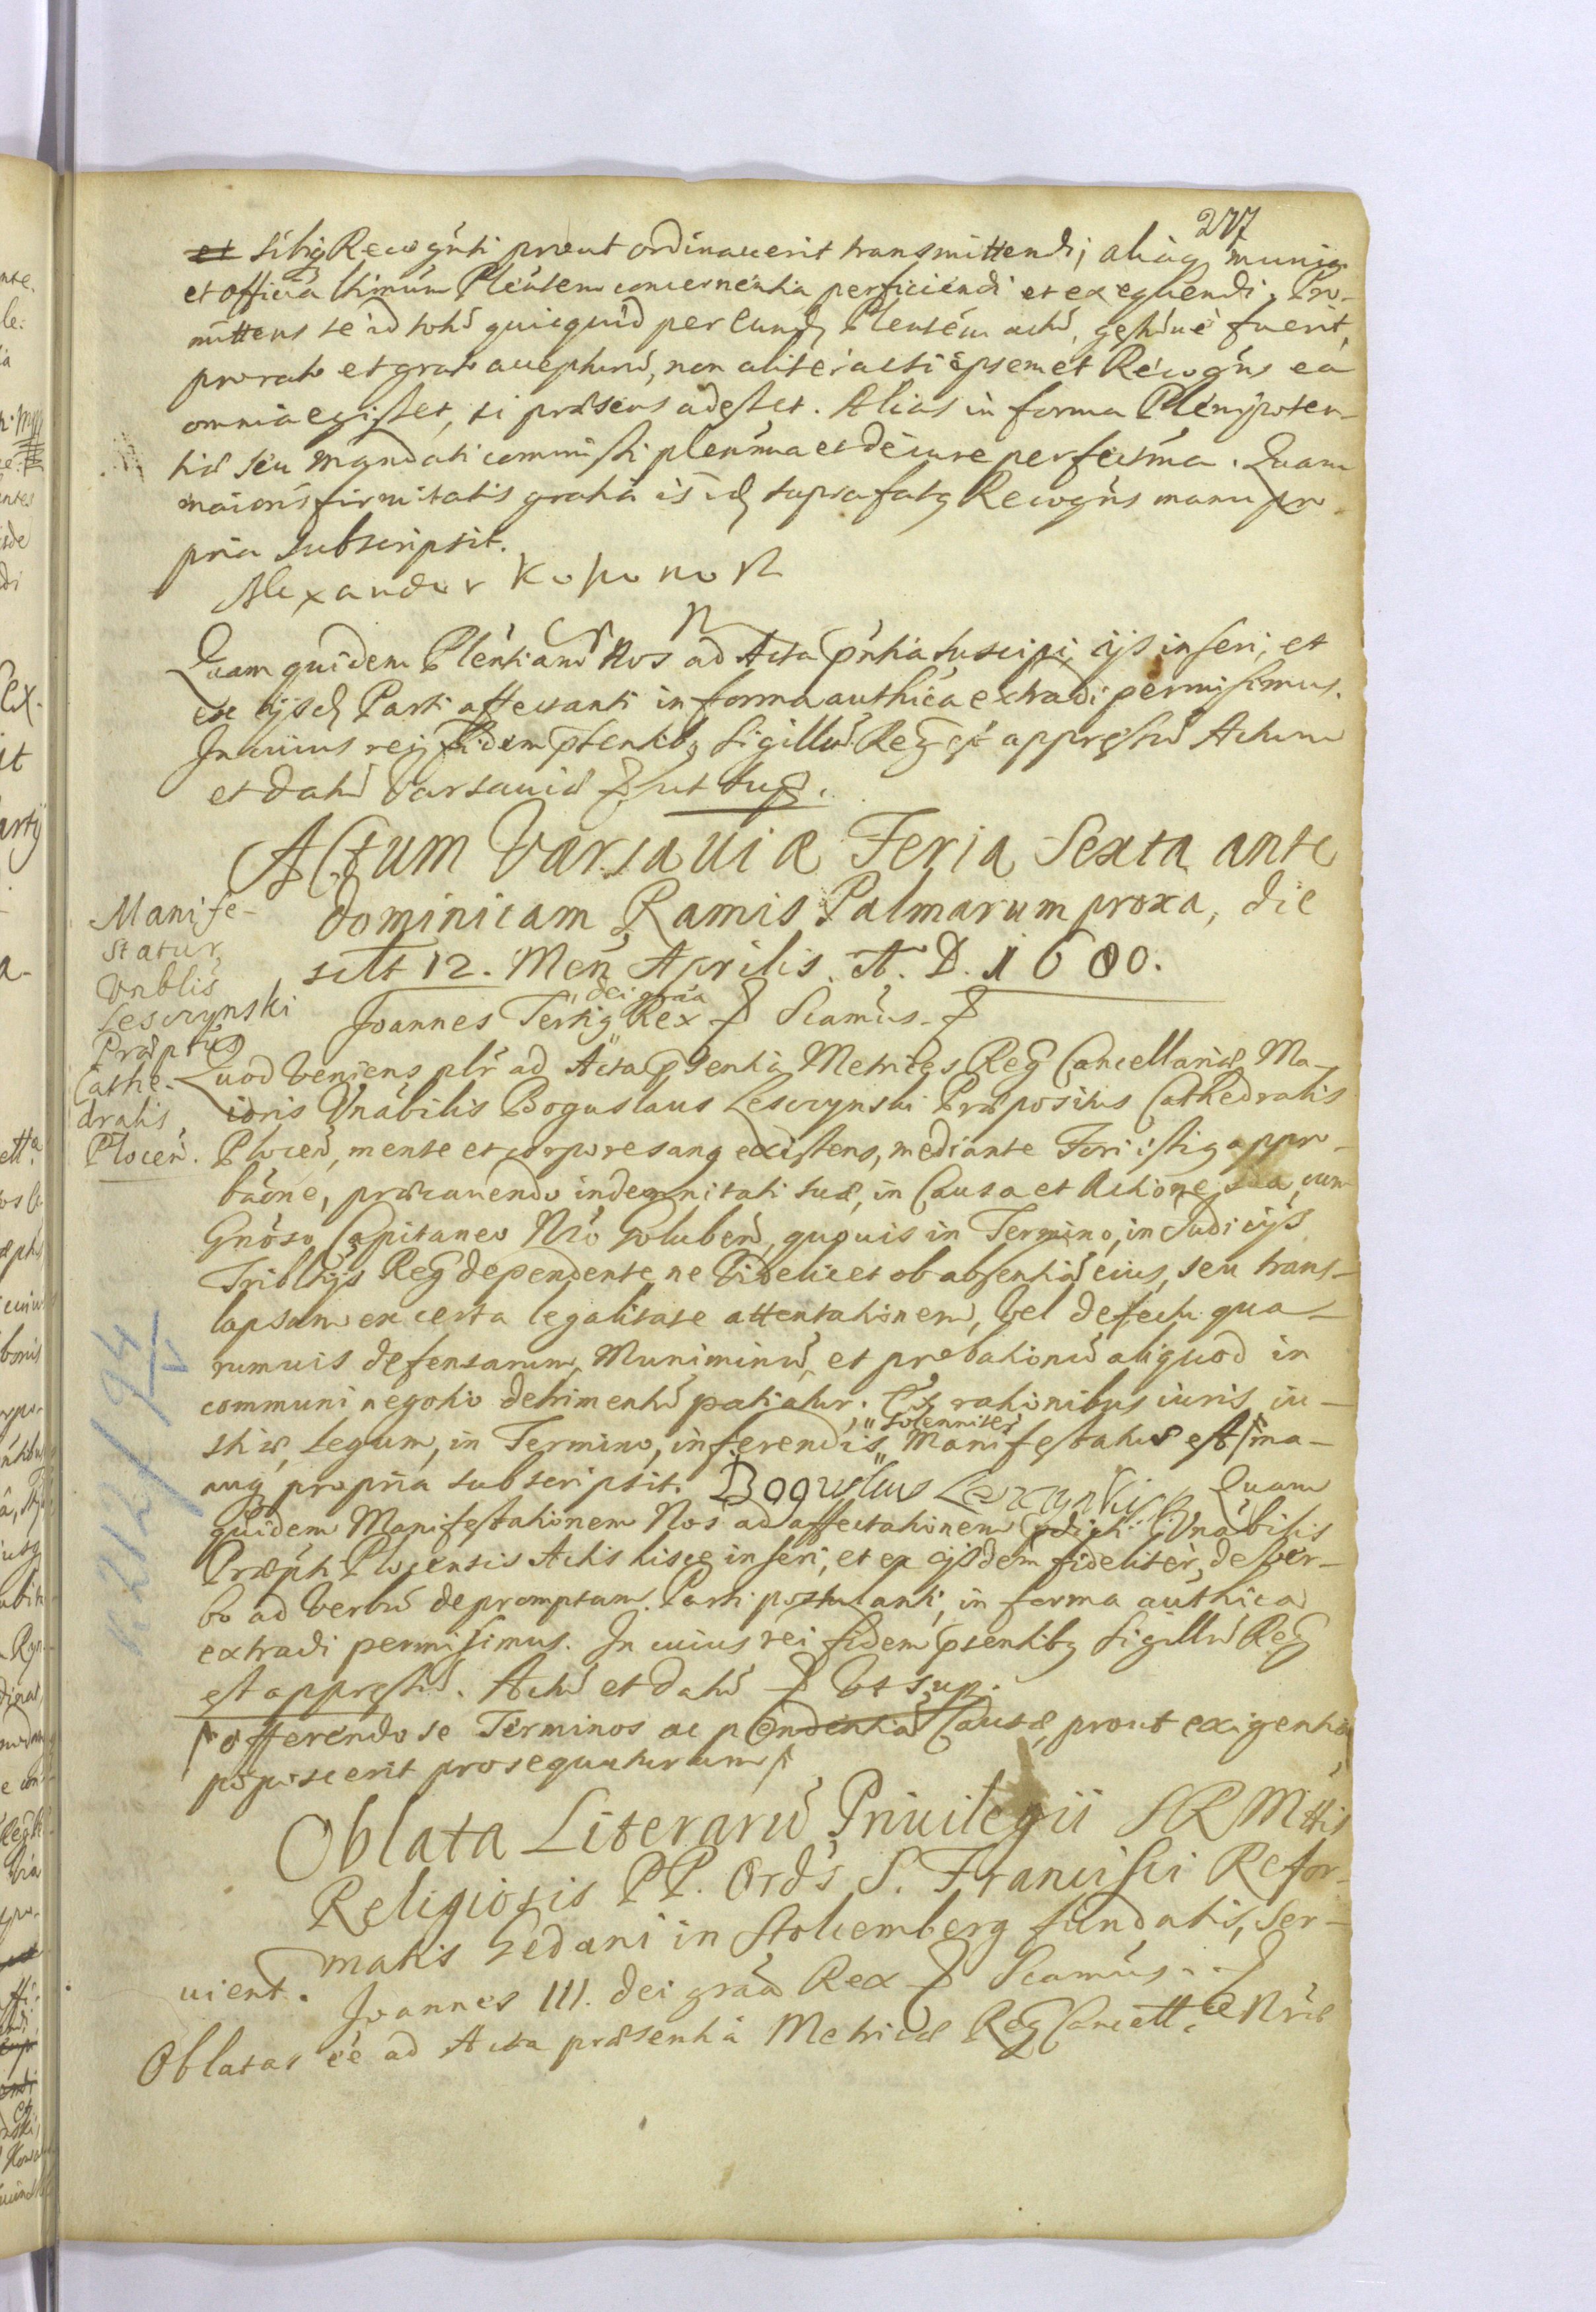 277
et sibiq Recognti prout ordinauerit transmittendi, aliaq munia
et officia simům Plentem concernentia perficiendi et exequendi. Pro-
mittens se id totů quicquid per eund Plentem actů, gestůue fuerit,
pro rato et grato accepturů, non aliter acsi ipsemet Recogns ea
omnia egisset, si præsens adesset. Alias in forma Plenipoten-
tiæ seu Mandati commissi plenma et de iure perfectma. Quam
maioris firmitatis gratia is id suprafatg Recogns manu pro
pria subscripsit.
Alexander Koponoſt
Quam quidem Plentiam Nos ad Acta pntia suscipi, ijs inseri, et
ex ijsd Parti affectanti in forma authica extradi permisimus.
In cuius rei fidem psentibg Sigillů Reg est appressů Actum
et datů Varsauiæ ut sup.
Actum Varsauiæ Feria Sexta ante
dominicam Ramis Palmarum proxa, die
scilt 12. Men Aprilis A. D. 1680.
Manife-
statur
Vnblis
Lesczynski
Præptus
Cathe-
dralis
Plocen.
dei graa
Joannes Tertig Rex Scamus.
Quod veniens plr ad Acta psentia Metrices Reg Cancellariæ Ma-
ioris Vnabilis Boguslaus Lesczynski Præpositus Cathedralis
Plocen, mente et corpore sang existens, mediante Fori istig appro-
baone, præcauendo indemnitati suæ, in Causa et Actione sua, cum
Gnoso Capitaneo Nro Goluben, quouis in Termino, in Judicijs
Tribltijs Reg dependente, ne Videlicet ob absentiă eius, seu trans-
lapsam ex certa legalitate attentationem, vel defectu qua-
rumuis defensarum, Muniminů, et probationů aliquod in
communi negotio detrimentů patiatur. Eis rationibus iuris, iu-
stitiæ, Legum, in Termino, inferendis, solenniter Manifestatus est / ma-
nuq propria subscripsit. Boguslaus Lesczynski Quam
quidem Manifestationem Nos ad affectationem pdicti Vnabilis
Præpti Plocensis Actis hisce inseri, et ex ijsdem fideliter, de Ver-
bo ad Verbů depromptam Parti postulanti, in forma authica
extradi permisimus. In cuius rei fidem psentibg Sigillů Reg
est appressů. Actů et datů Vt sup.
/ offerendo se Terminos ac pendentiă Causæ, prout exigentia
poposcerit prosequuturum /
Oblata Literarů Priuilegii SRMttis
Religiosis PP. Ords S. Francisci Refor-
matis Gedani in Stolcemberg fundatis, Ser-
uient.
Joannes III. dei graa Rex Scamus.
Oblatas ee ad Acta præsentia Metricæ Reg Cancellæ Nræ